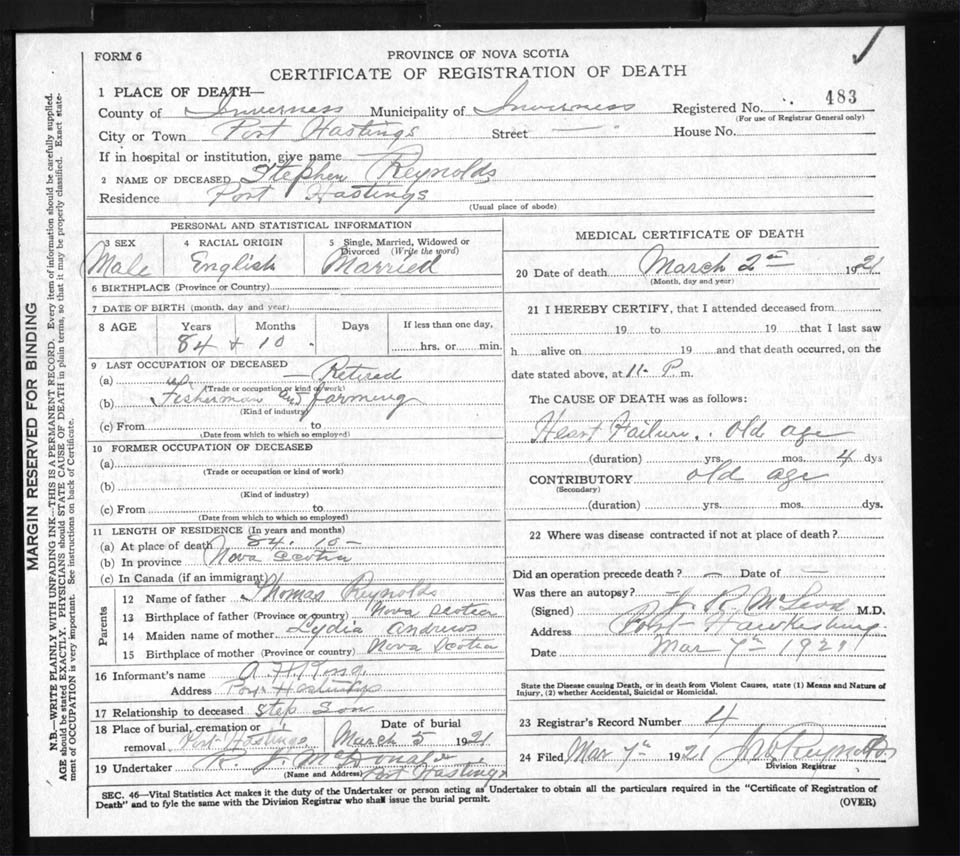 FORM 6
PROVINCE OF NOVA SCOTIA
CERTIFICATE OF REGISTRATION OF DEATH
1 PLACE OF DEATH—
County of Inverness Municipality of Inverness Registered No. 483
(For use of Registrar General only)
City or Town Port Hastings Street — House No.
If in hospital or institution, give name —
2 NAME OF DECEASED Stephen Reynolds
Residence Port Hastings
(Usual place of abode)
PERSONAL AND STATISTICAL INFORMATION
3 SEX 4 RACIAL ORIGIN 5 Single, Married, Widowed or Divorced (Write the word)
Male English Married
6 BIRTHPLACE (Province or Country)
7 DATE OF BIRTH (month, day and year)
8 AGE Years Months Days If less than one day,
84 + 10 hrs. or min.
9 LAST OCCUPATION OF DECEASED
(a) — Retired
(Trade or occupation or kind of work)
(b) Fisherman and farming
(Kind of industry)
(c) From to
(Date from which to which so employed)
10 FORMER OCCUPATION OF DECEASED
(a)
(Trade or occupation or kind of work)
(b)
(Kind of industry)
(c) From to
(Date from which to which so employed)
11 LENGTH OF RESIDENCE (In years and months)
(a) At place of death 84. 10 —
(b) In province Nova Scotia
(c) In Canada (if an immigrant)
Parents
12 Name of father Thomas Reynolds
13 Birthplace of father (Province or country) Nova Scotia
14 Maiden name of mother Lydia Andrews
15 Birthplace of mother (Province or country) Nova Scotia
16 Informant's name A. H.
Address Port Hastings
17 Relationship to deceased Step Son
18 Place of burial, cremation or removal Port Hastings Date of burial March 5 1921
19 Undertaker R. J. McDonald
(Name and Address) Port Hastings
MEDICAL CERTIFICATE OF DEATH
20 Date of death March 2nd 1921
(Month, day and year)
21 I HEREBY CERTIFY, that I attended deceased from
19 to 19 that I last saw
h alive on 19 and that death occurred, on the
date stated above, at 11- P m.
The CAUSE OF DEATH was as follows:
Heart Failure.. old age
(duration) yrs. mos. 4 dys
CONTRIBUTORY old age
(Secondary)
(duration) yrs. mos. dys.
22 Where was disease contracted if not at place of death?
Did an operation precede death? — Date of —
Was there an autopsy?
(Signed) J. R. McLeod M.D.
Address Port Hawkesbury
Date Mar 7th 1921
State the Disease causing Death, or in death from Violent Causes, state (1) Means and Nature of
Injury, (2) whether Accidental, Suicidal or Homicidal.
23 Registrar's Record Number 4
24 Filed Mar 7th 1921 Reynolds
Division Registrar
SEC. 46—Vital Statistics Act makes it the duty of the Undertaker or person acting as Undertaker to obtain all the particulars required in the "Certificate of Registration of
Death" and to fyle the same with the Division Registrar who shall issue the burial permit. (OVER)
MARGIN RESERVED FOR BINDING
N.B.—WRITE PLAINLY WITH UNFADING INK—THIS IS A PERMANENT RECORD. Every item of information should be carefully supplied.
AGE should be stated EXACTLY. PHYSICIANS should STATE CAUSE OF DEATH in plain terms, so that it may be properly classified. Exact state-
ment of OCCUPATION is very important. See instructions on back of Certificate.